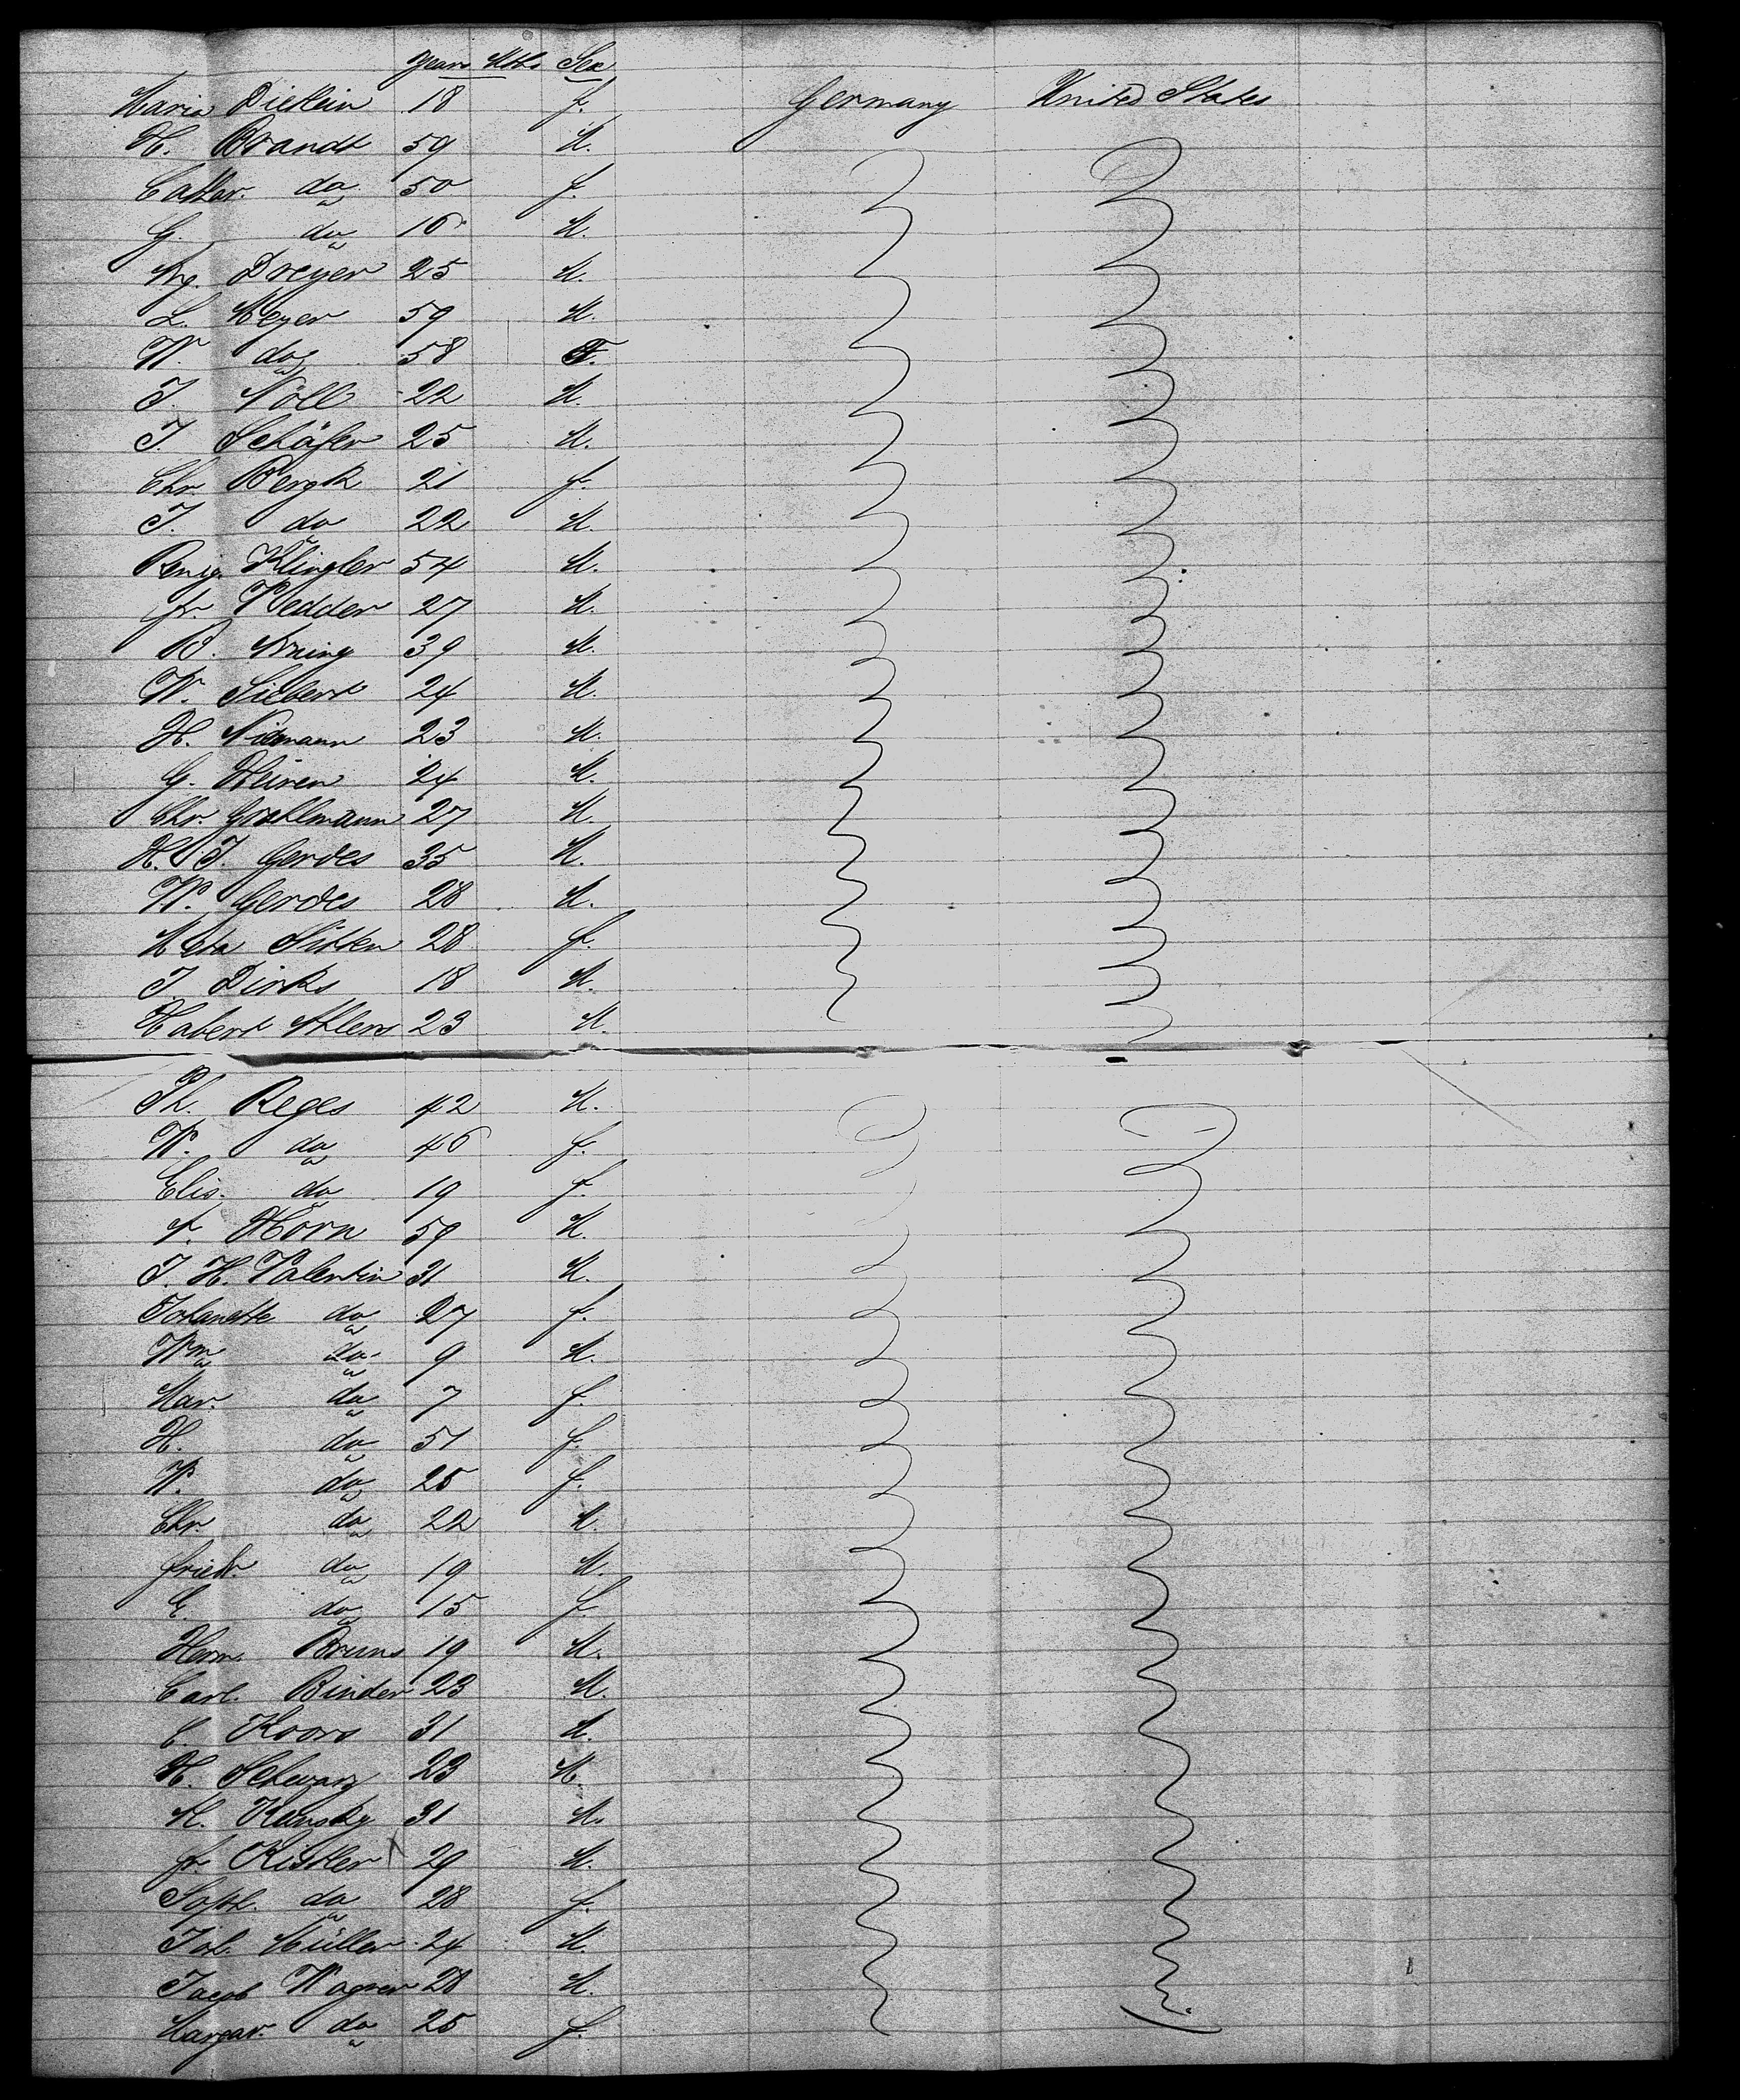 Years Mths Sex
Maria Dietlein 18 f. Germany United States
H. Brandt 59 M.
Cathar. do 50 f.
G. do 16 M.
Dreyer 25 M.
L. Meyer 59 M.
W. do 58 F.
J. Nöll 22 M.
J. Schäfer 25 M.
Chr. Bergk 21 f.
J. do 22 M.
Benig. Klingler 54 M.
Fr. Vedder 27 M.
B. 39 M.
W. Siebert 24 M.
H. Niemann 23 M.
G. 24 M.
Chr. Grahlmann 27 M.
H. J. Gerdes 35 M.
W. Gerdes 28 M.
Meta 28 f.
J Dirks 18 M.
Habert Ahlers 23 M.
Ph. Reges 42 M.
W. do 46 f.
Elis. do 19 f.
Horn 59 M.
J. H. Valentin 31 M.
Johanette do 27 f.
Wm do 9 M.
Mar. do 7 f.
H. do 51 f.
W. do 25 f.
Chr. do 22 M.
Friedr. do 19 M.
E. do 15 f
Herm. Bruns 19 M.
Carl. Binder 23 M.
C. Koors 31 M.
H. Schwarz 23 M.
M. Kunsky 31 M.
Fr. Kistler 29 M.
Soph. do 28 f.
Joh. Müller 24 M.
Jacob Wagner 28 M.
Margar. do 25 f.